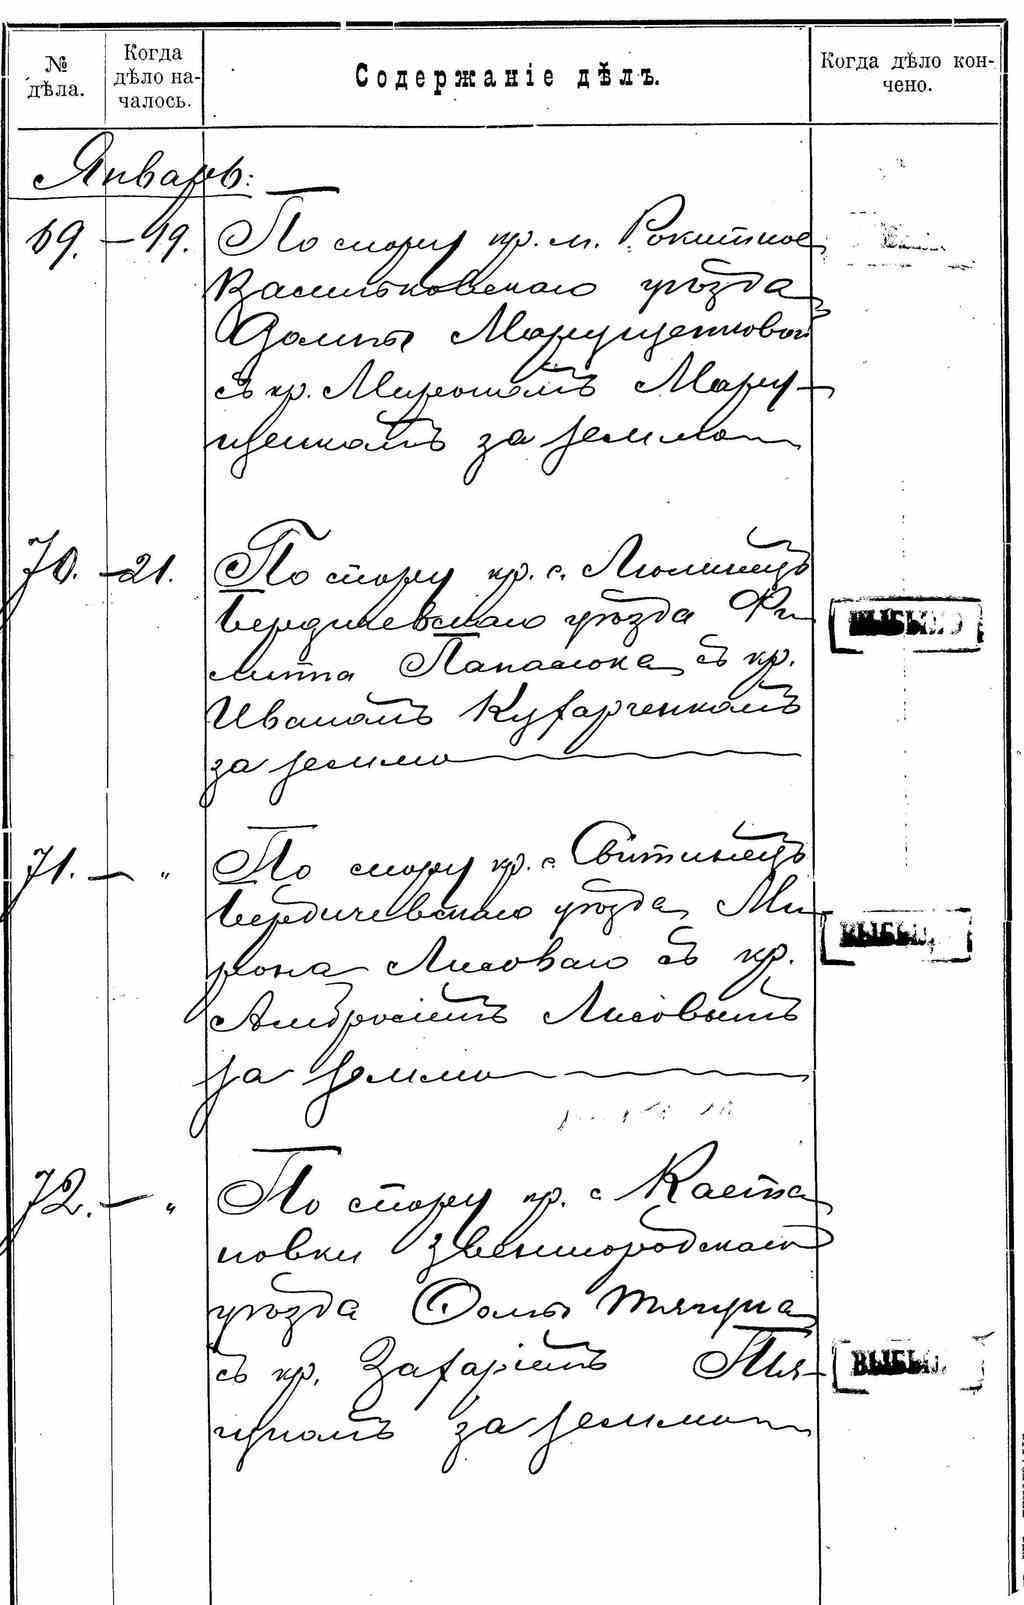 № дѣла.
Когда дѣло на-
чалось.
Содержаніе дѣлъ.
Когда дѣло кон-
чено.
Январь:
69. — 19. По спору кр. м. Рокитное
Васильковскаго уѣзда
Домны Марущенковой
съ кр. Мирономъ Мару-
щенкомъ за землю
70. — 21. По спору кр. с. Люлинецъ
Бердичевскаго уѣзда Фи
липпа Панасюка съ кр.
Иваномъ Кухарченкомъ
за землю
ВЫБЫЛО
71. — " По спору кр. с. Свитинецъ
Бердичевскаго уѣзда Ми
рона Лисоваго съ кр.
Амвросіемъ Лисовымъ
за землю
ВЫБЫЛО
72. — " По спору кр. с Каета
новки Звенигородскаго
уѣзда Ѳомы Тягуна
съ кр. Захаріемъ Тя-
гуномъ за землю
ВЫБЫЛО